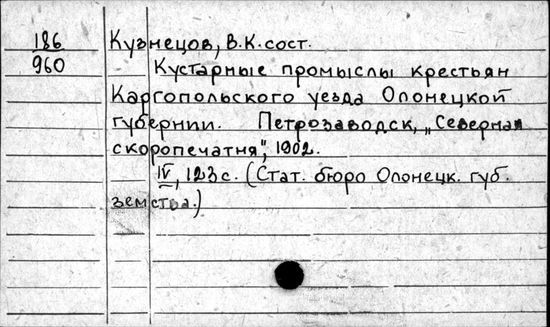 186 Кузнецов, В.К. сост.
960 Кустарные промыслы крестьян
Каргопольского уезда Олонецкой
губернии. Петрозаводск, „Северная
скоропечатня", 1902.
IV, 123 с. (Стат. бюро Олонецк. губ.
земства.)